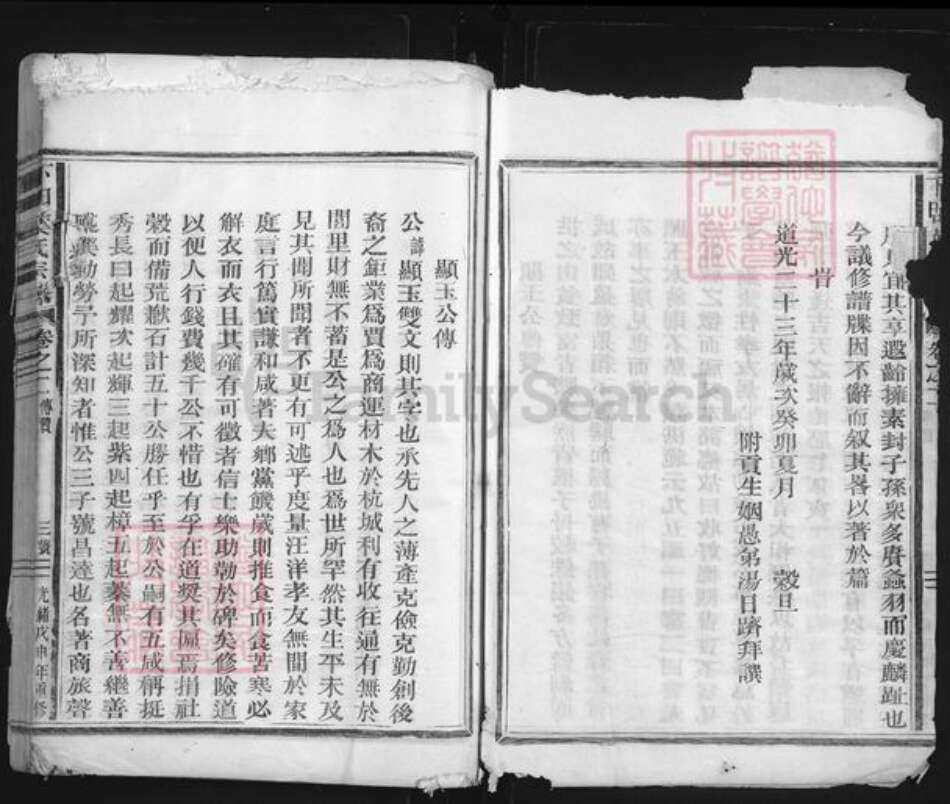 宜其享遐齡擁素封子孫衆多賡螽羽而慶麟趾也
今議修譜牒因不辭而叙其畧以著於篇
旹
道光二十三年歲次癸卯夏月 穀旦
附貢生姻愚弟湯日躋拜譔
顯玉公傳
公諱顯玉雙文則其字也承先人之薄產克儉克勤創後
裔之鉅業爲賈爲商運材木於杭城利有收往通有無於
閭里財無不蓄是公之爲人也爲世所罕然其生平未及
見其聞所聞者不更有可述乎度量汪洋孝友無間於家
庭言行篤實謙和咸著夫鄉黨饑歲則推食而食苦寒必
解衣而衣且其確有可徵者信士樂助勒於碑矣修險道
以便人行錢費幾千公不惜也有孚在道獎其匾焉捐社
穀而備荒歉石計五十公勝任乎至於公嗣有五咸稱挺
秀長曰起耀次起輝三起紫四起樟五起蓁無不善繼善
述冀勤勞予所深知者惟公三子號昌達也名著商旅聲
氏宗譜 卷之二 傳贊 三 光緒戊申年重修
FamilySearch